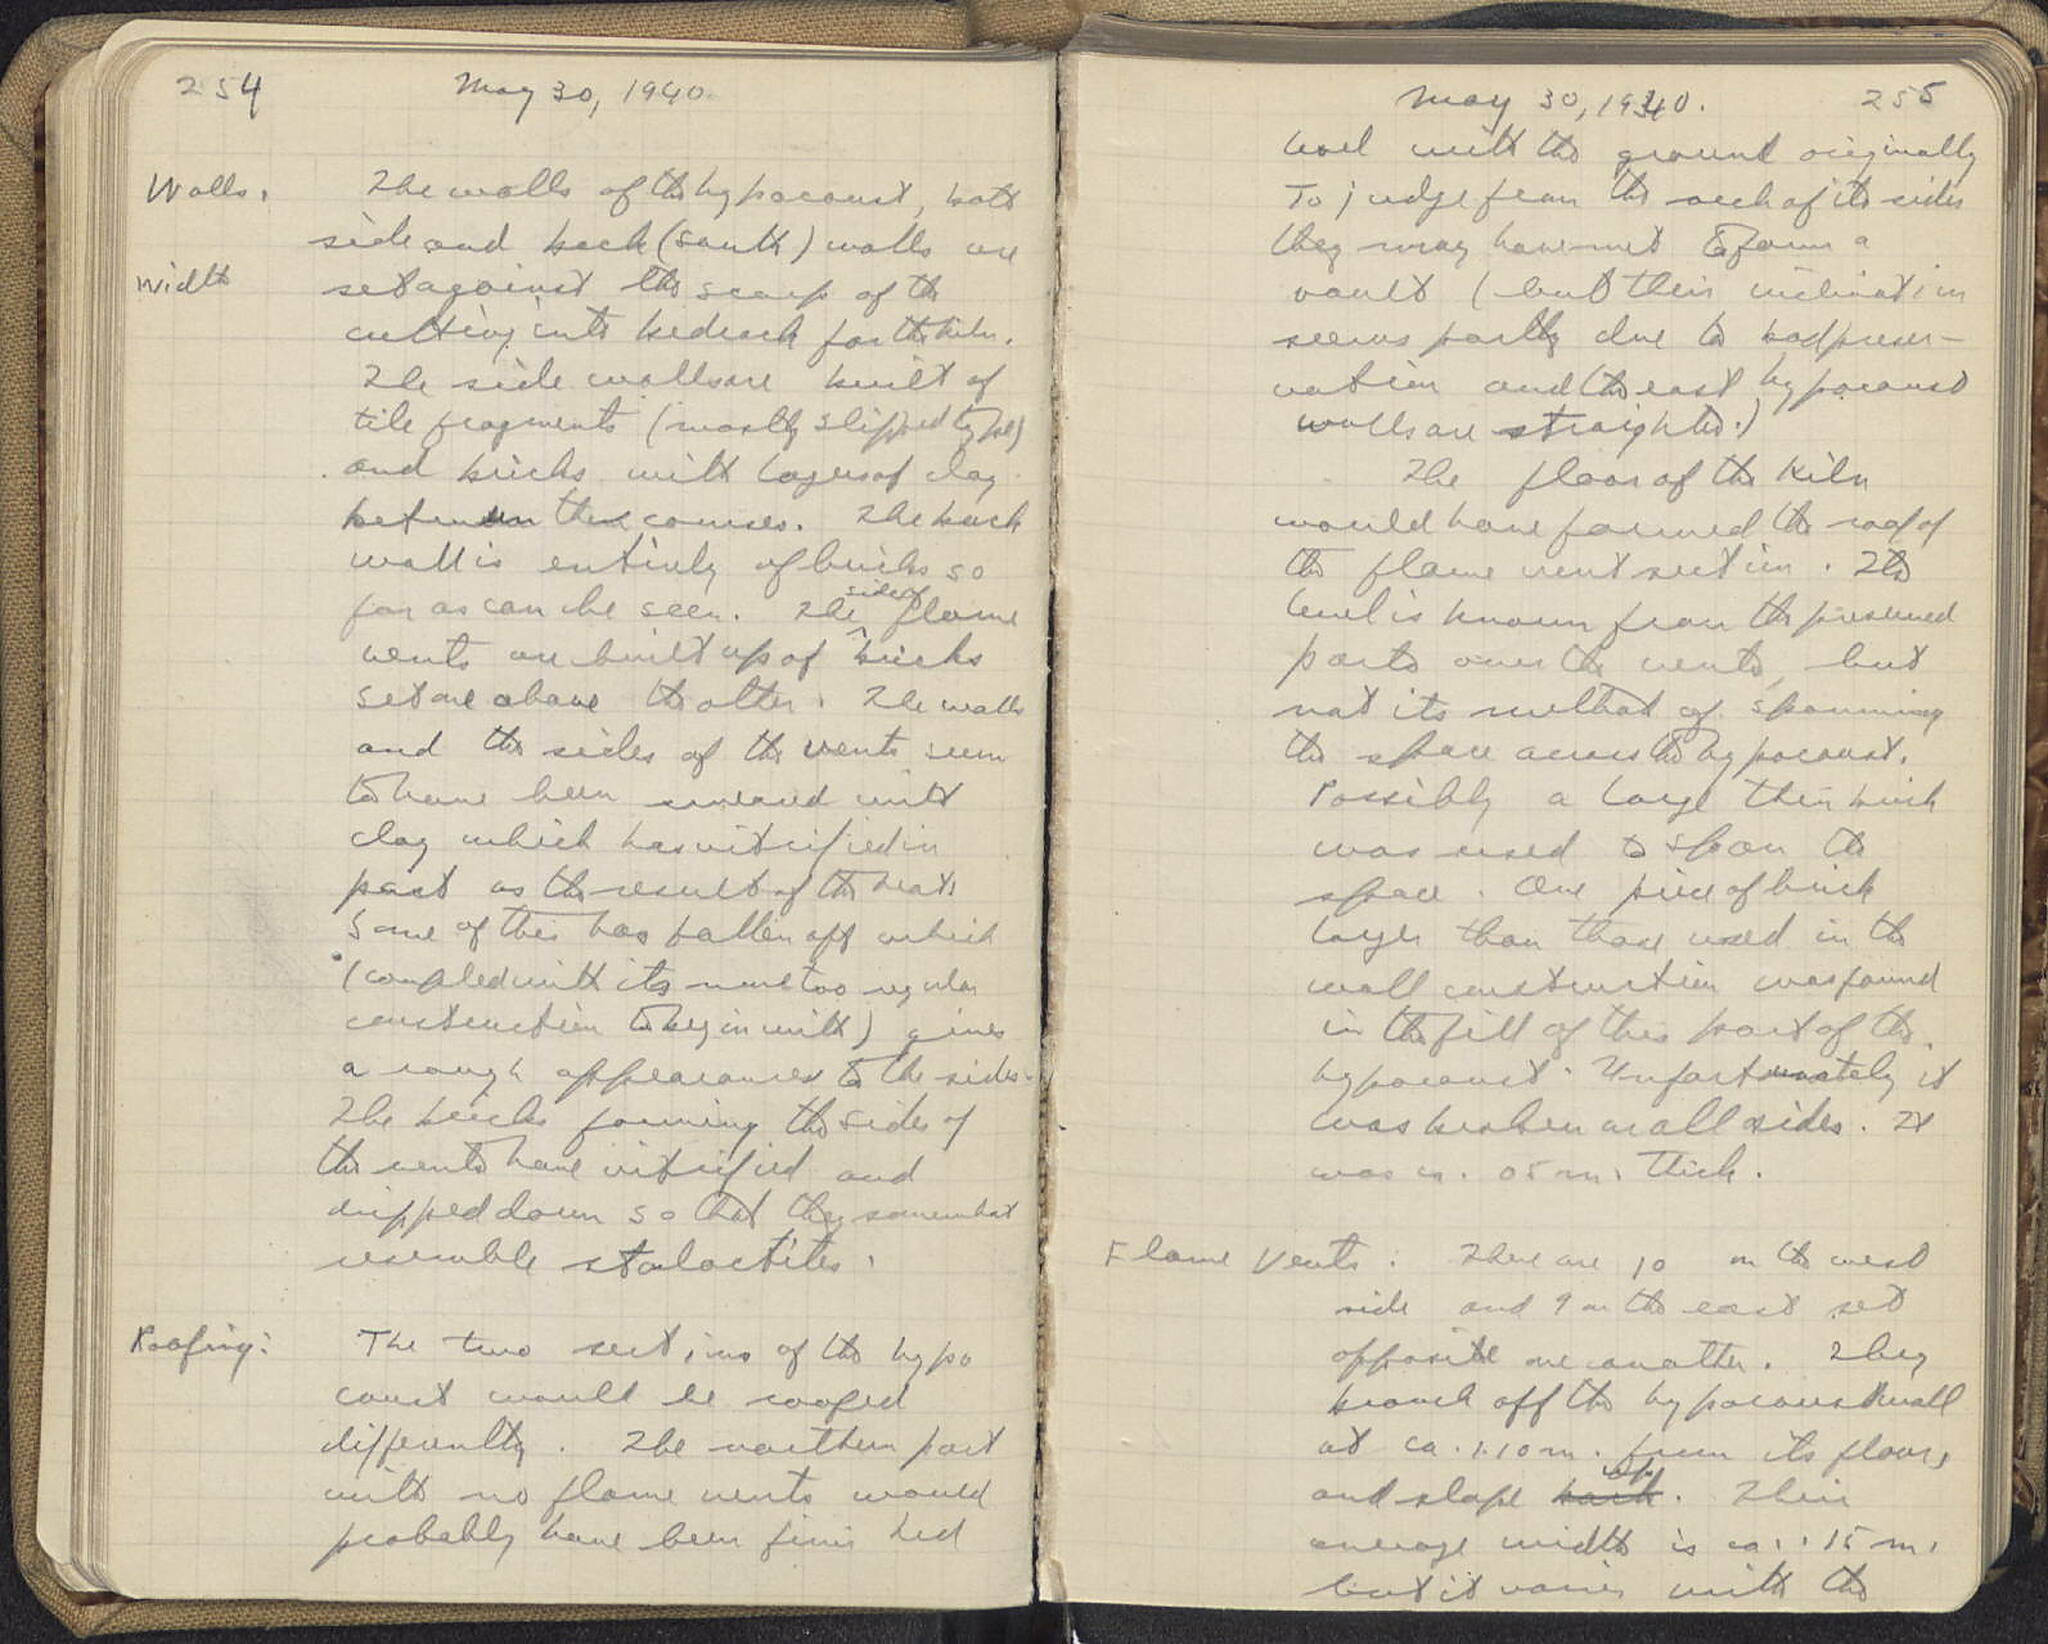 254 May 30, 1940.
Walls. The walls of the hypocaust, both
side and back (south) walls are
Width set against the scarp of the
cutting into bedrock for the kiln.
The side walls are built of
tile fragments (mostly slipped type)
and bricks with layers of clay
between the courses. The back
wall is entirely of bricks so
far as can be seen. The side of flame
vents are built up of bricks
set one above the other. The walls
and the sides of the vents seem
to have been smeared with
clay which has vitrified in
part as the result of the heat.
Some of this has fallen off which
(coupled with its none too regular
construction to begin with) gives
a rough appearance to the sides.
The bricks forming the sides of
the vents have vitrified and
dripped down so that they somewhat
resemble stalactites.
Roofing: The two sections of the hypo
caust would be roofed
differently. The northern part
with no flame vents would
probably have been finished
May 30, 1940. 255
level with the ground originally
To judge from the arch of its sides
they may have met to form a
vault (but their inclination
seems partly due to bad preser-
vation and the east hypocaust
walls are straighter.)
The floor of the kiln
would have formed the roof of
the flame vent section. Its
level is known from the preserved
parts over the vents, but
not its method of spanning
the space across the hypocaust.
Possibly a large thin brick
was used to span the
space. One piece of brick
larger than those used in the
wall construction was found
in the fill of this part of the
hypocaust. Unfortunately it
was broken on all sides. It
was ca. 05 m. thick.
Flame Vents: There are 10 on the west
side and 9 on the east set
opposite one another. They
branch off the hypocaust wall
at ca. 1.10 m. from its floor,
and slope back up. Their
average width is ca. .15 m.
but it varies with the